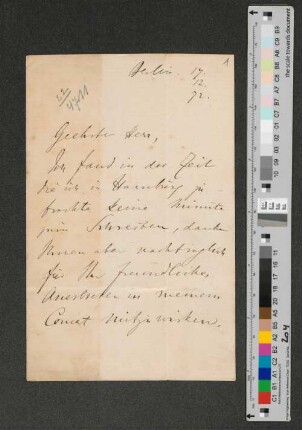 1
Berlin 17.
12
72.
Geehrter Herr,
Ich fand in der Zeit
die ich in Hamburg zu
brachte keine Minute
zum Schreiben, danke
Ihnen aber nachträglich
für Ihr freundliches
Anerbieten in meinem
Concert mitzuwirken.
the scale towards document
204